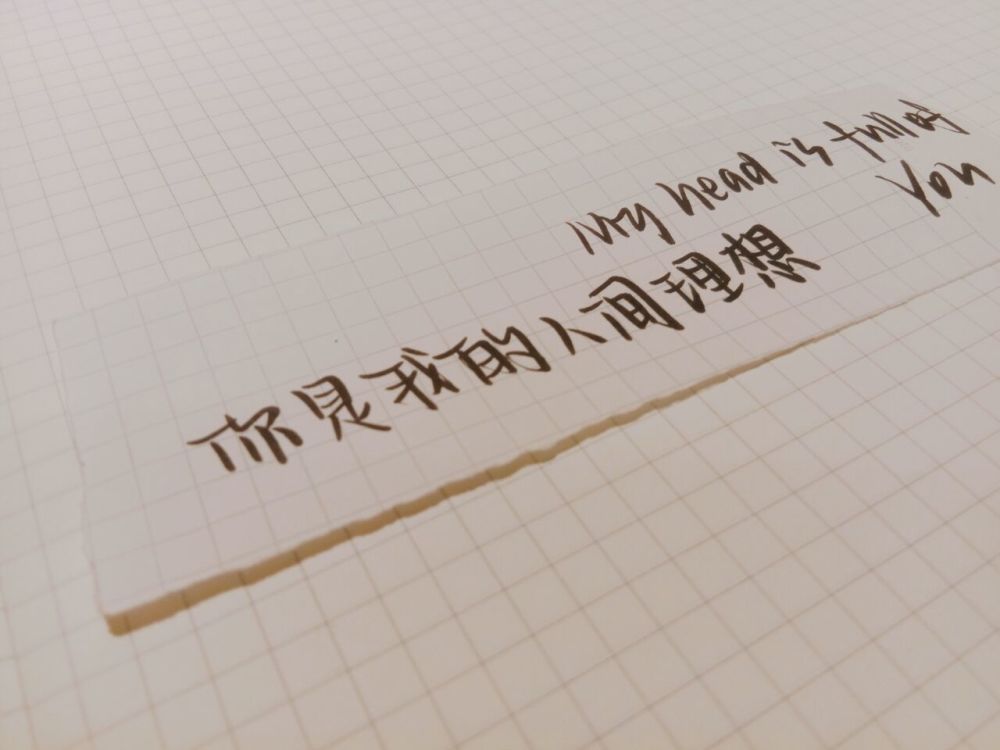 My head is full of
You
你是我的人间理想